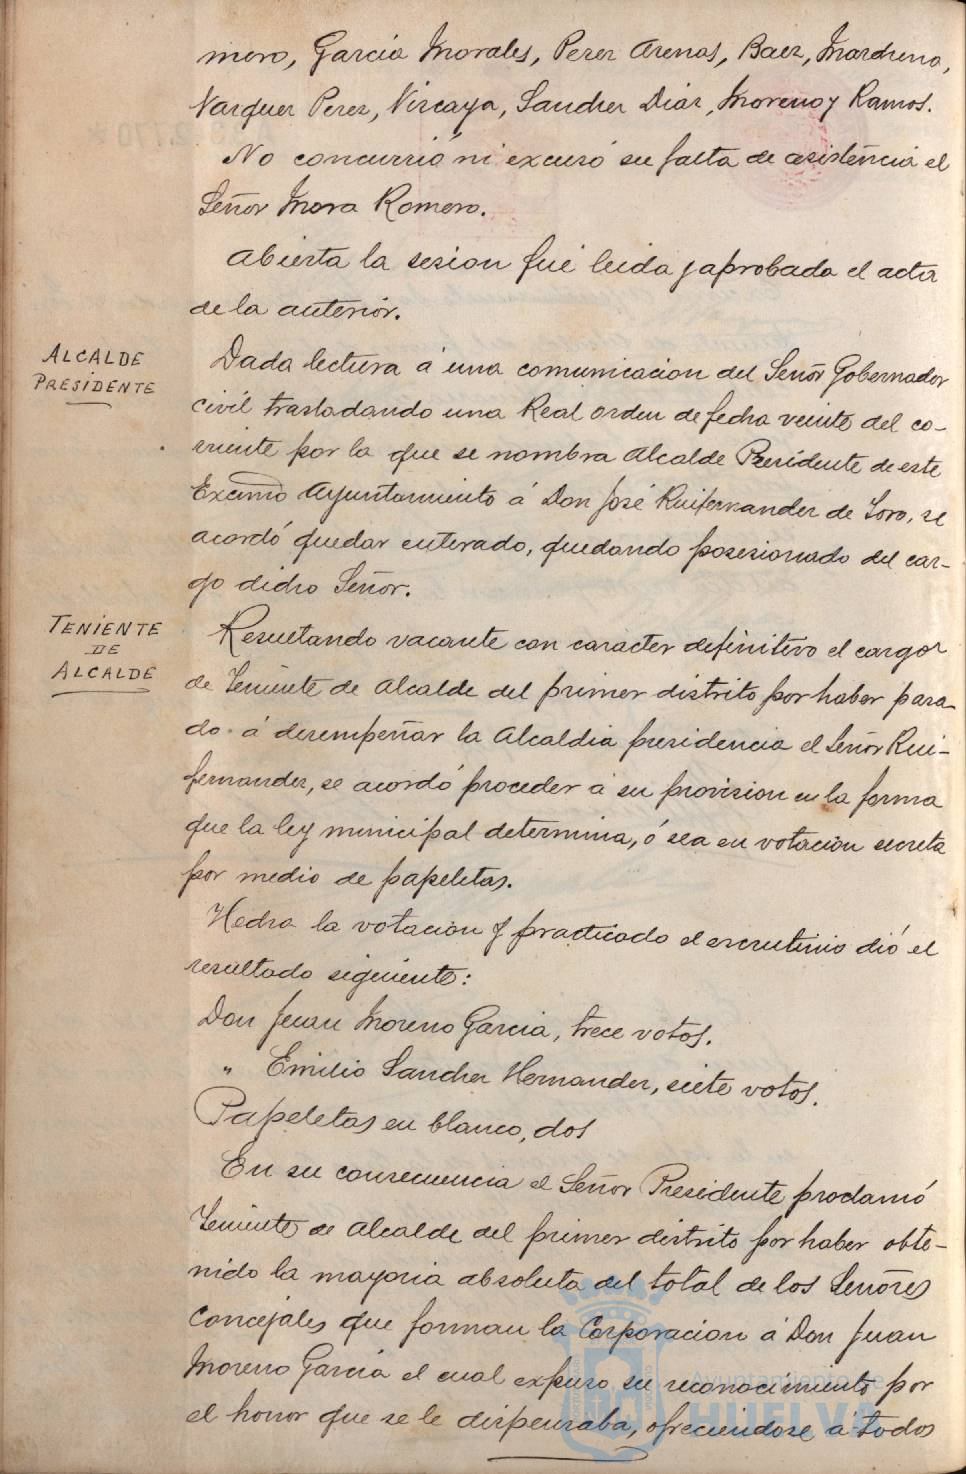 mero, García Morales, Perez Arenas, Baez, Mardreno,
Vazquez Perez, Vizcaya, Sanchez Diaz, Moreno y Ramos.
No concurrió ni excusó su falta de asistencia el
Señor Mora Romero.
Abierta la sesion fué leida y aprobada el acta
de la anterior.
ALCALDE
PRESIDENTE
Dada lectura á una comunicacion del Señor Gobernador
civil trasladando una Real orden de fecha veinte del co-
rriente por la que se nombra Alcalde Presidente de este
Excmo Ayuntamiento á Don José Ruifernandez de Toro, se
acordó quedar enterado, quedando posesionado del car-
go dicho Señor.
TENIENTE
DE
ALCALDE
Resultando vacante con caracter definitivo el cargo
de Teniente de Alcalde del primer distrito por haber pasa-
do á desempeñar la Alcaldia presidencia el Señor Rui-
fernandez, se acordó proceder á su provision en la forma
que la ley municipal determina, ó sea en votacion secreta
por medio de papeletas.
Hecha la votacion y practicado el escrutinio dió el
resultado siguiente:
Don Juan Moreno Garcia, trece votos.
" Emilio Sanchez Hernandez, siete votos.
Papeletas en blanco, dos
En su consecuencia el Señor Presidente proclamó
Teniente de Alcalde del primer distrito por haber obte-
nido la mayoria absoluta del total de los Señores
Concejales que forman la Corporacion á Don Juan
Moreno García el cual expuso su reconocimiento por
el honor que se le dispensaba, ofreciendose á todos
Ayuntamiento de
HUELVA